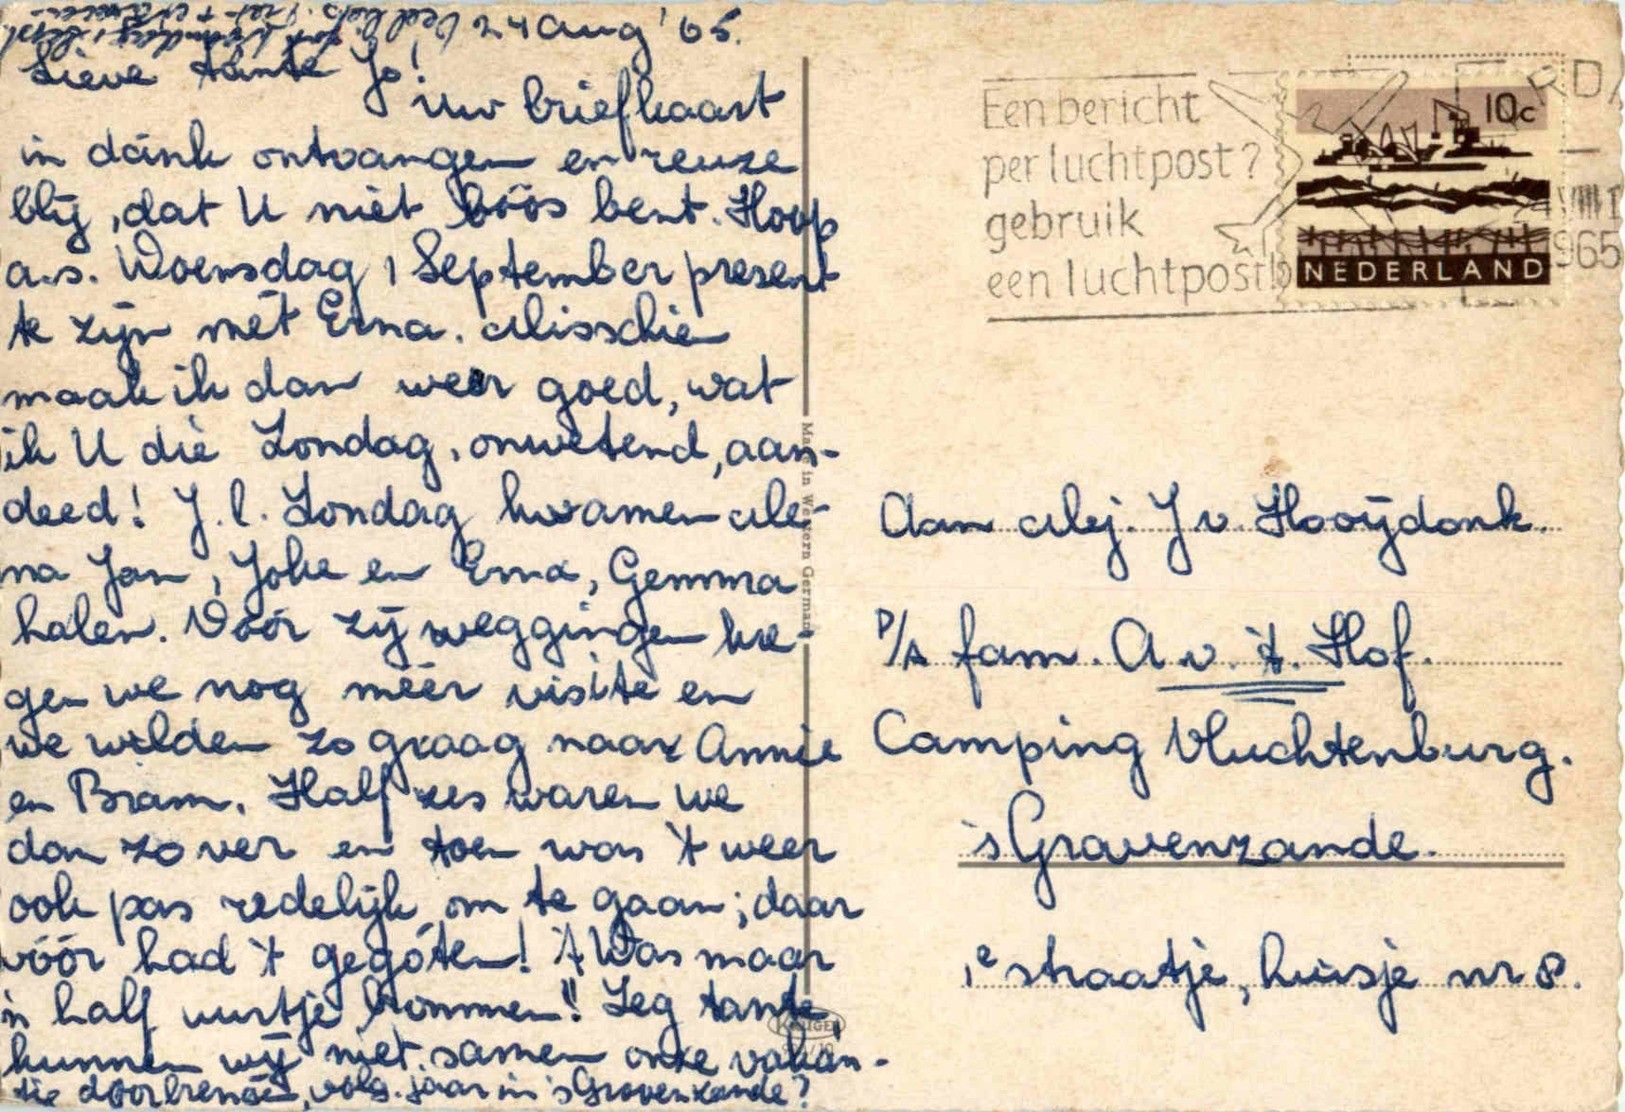 24 Aug '65.
Lieve tante Jo!
Uw briefkaart
in dánk ontvangen en reuze
blij, dat U niét bóós bent. Hoop
a.s. Woensdag 1 September present
te zijn mét Erna. Misschien
maak ik dan weer goed, wat
ik U die Zondag, onwetend, aan-
deed! J.l. Zondag kwamen Me-
na Jan, Joke en Erna, Gemma
halen. Vóór zij weggingen kre-
gen we nog méér visite en
we wilden zo graag naar Annie
en Bram. Half zes waren we
dan zo ver en toen was 't weer
ook pas redelijk om te gaan; daar
vóór had 't gegóten! 't Was maar
'n half uurtje brommen!! Zeg tante,
kunnen wij niet samen onze vakan-
tie doorbrengen, volg. jaar in 's Gravenzande?
Een bericht
per luchtpost?
gebruik
een luchtpost
10c
NEDERLAND
VIII
1965
Made in Western Germany
KRÜGER
Aan Mej. J v. Hooijdonk.
P/A fam. A v. 't. Hof.
Camping Vluchtenburg.
's Gravenzande.
1e straatje, huisje nr 8.